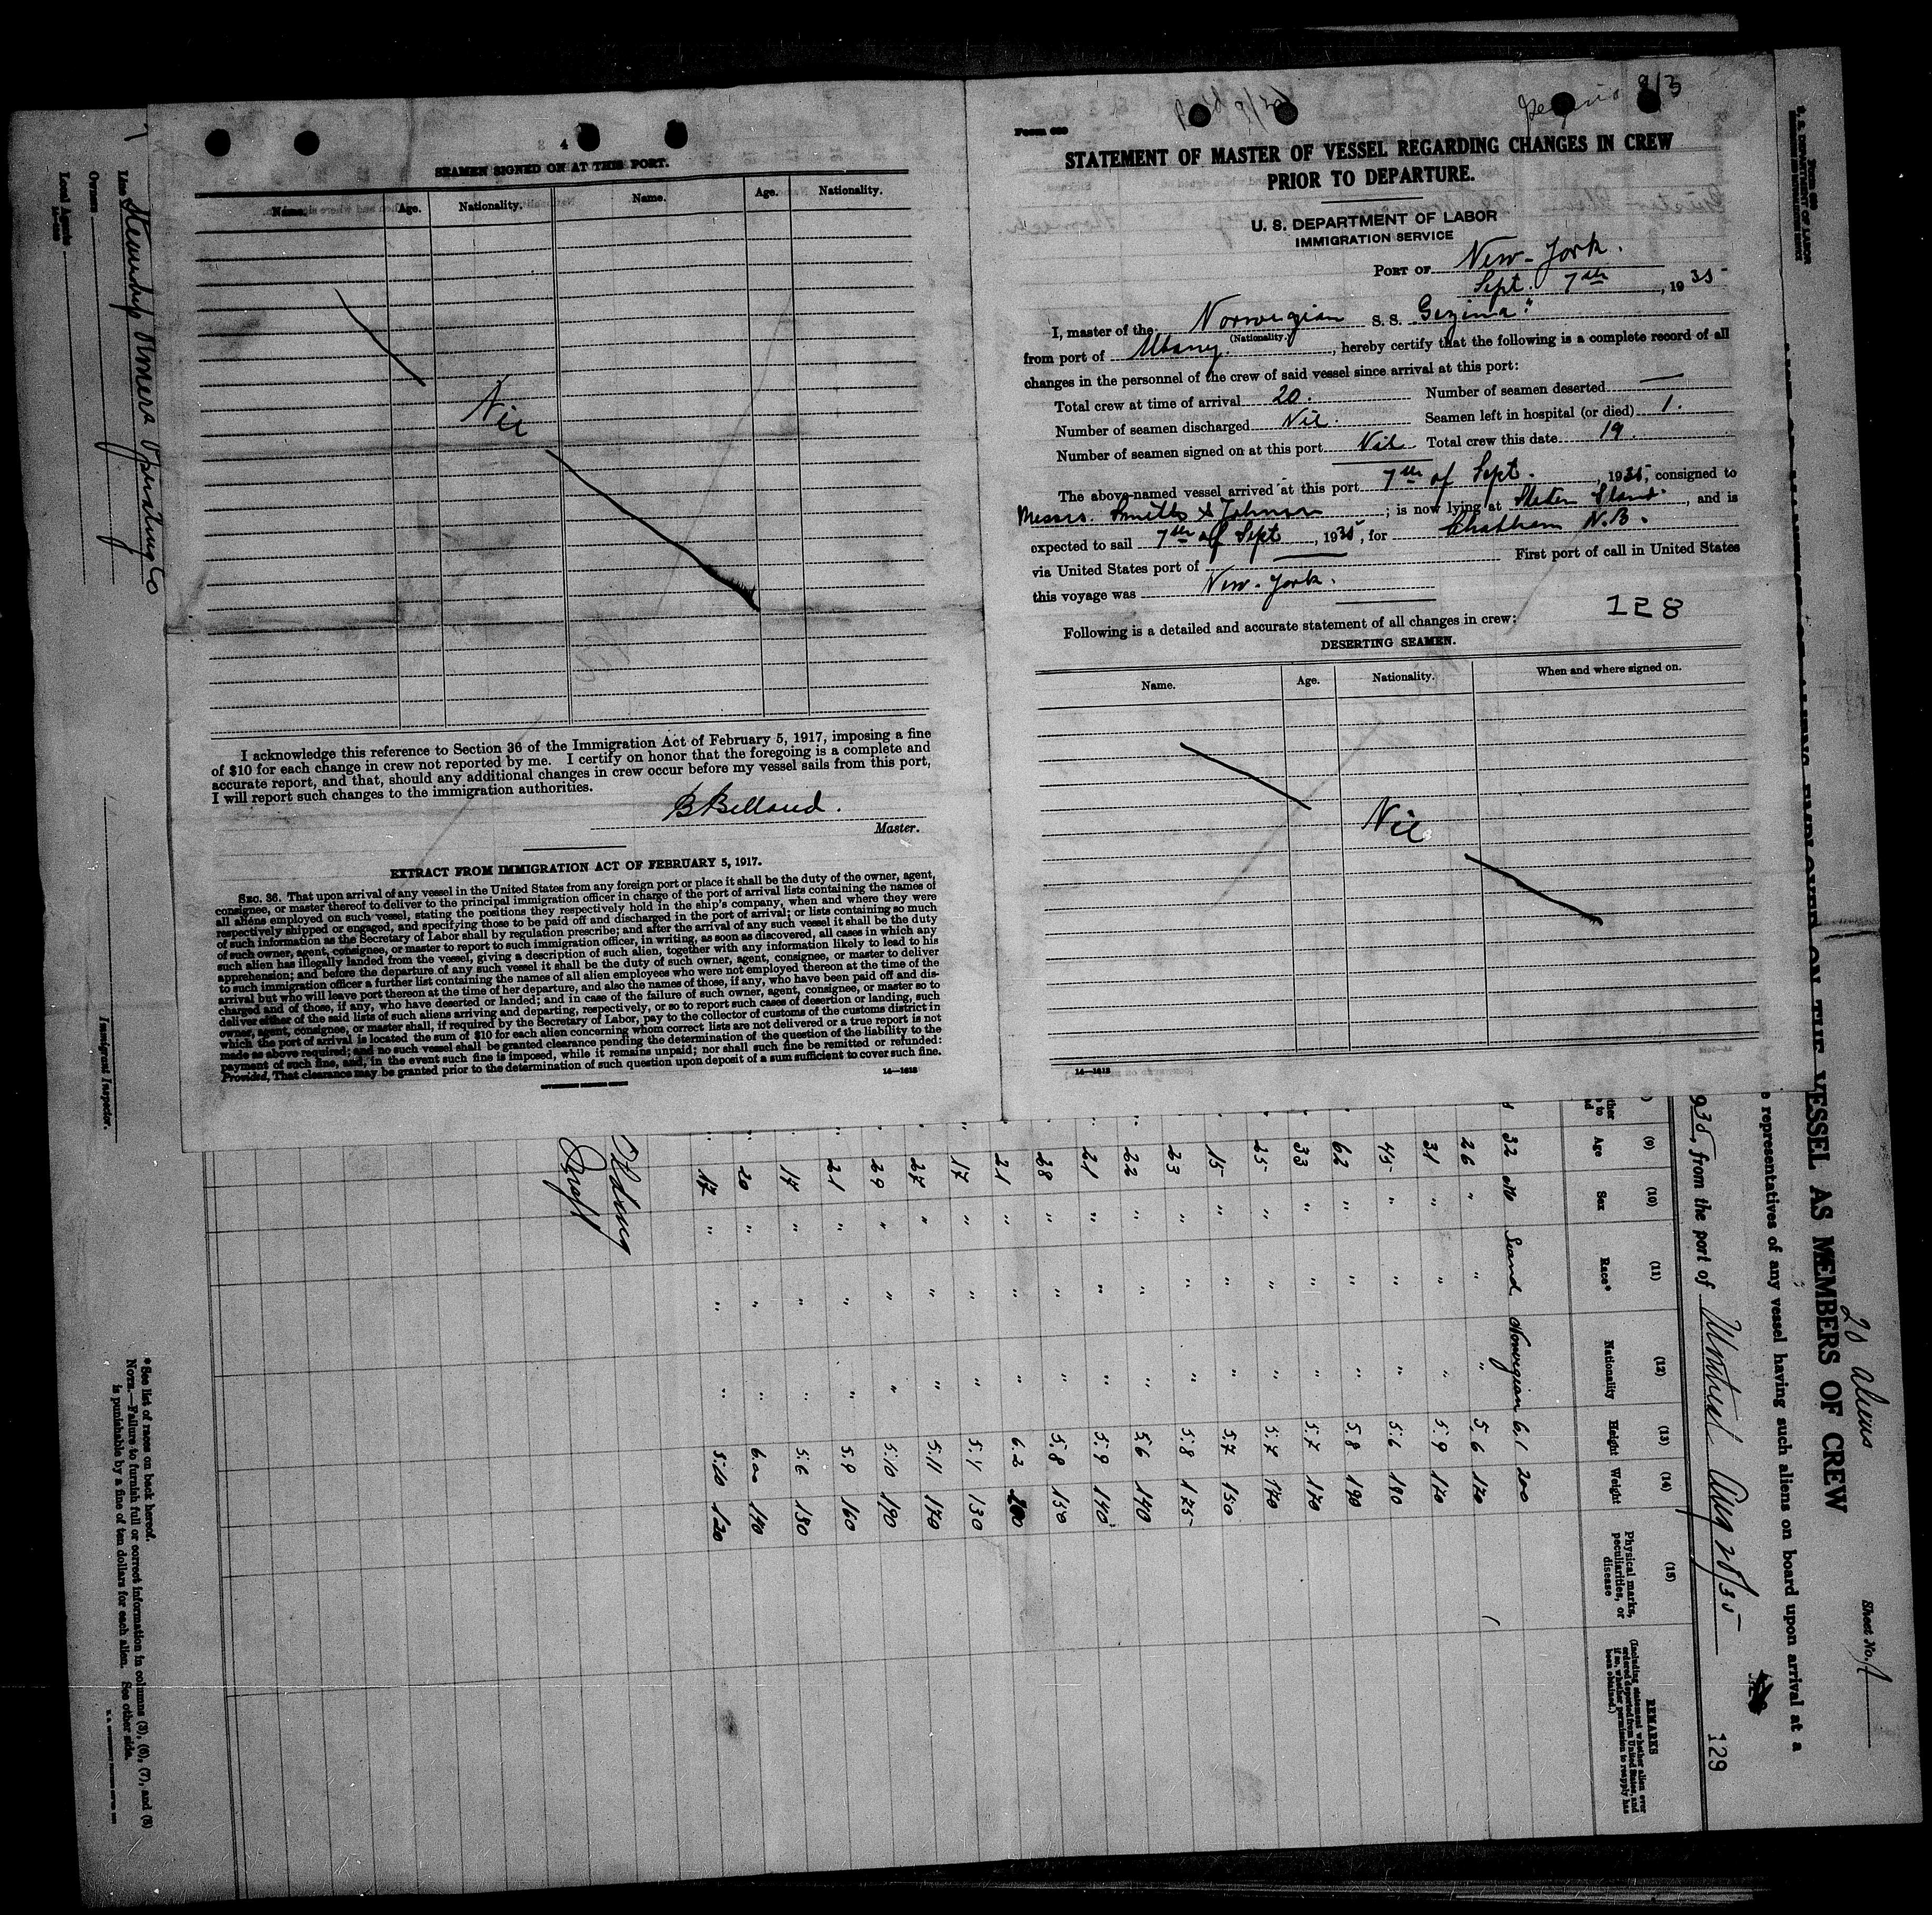 4
SEAMEN SIGNED ON AT THIS PORT.
Name. Age. Nationality. Name. Age. Nationality.
Nil
I acknowledge this reference to Section 36 of the Immigration Act of February 5, 1917, imposing a fine
of $10 for each change in crew not reported by me. I certify on honor that the foregoing is a complete and
accurate report, and that, should any additional changes in crew occur before my vessel sails from this port,
I will report such changes to the immigration authorities.
Master.
EXTRACT FROM IMMIGRATION ACT OF FEBRUARY 5, 1917.
SEC. 36. That upon arrival of any vessel in the United States from any foreign port or place it shall be the duty of the owner, agent,
consignee, or master thereof to deliver to the principal immigration officer in charge of the port of arrival lists containing the names of
all aliens employed on such vessel, stating the positions they respectively hold in the ship's company, when and where they were
respectively shipped or engaged, and specifying those to be paid off and discharged in the port of arrival; or lists containing so much
of such information as the Secretary of Labor shall by regulation prescribe; and after the arrival of any such vessel it shall be the duty
of such owner, agent, consignee, or master to report to such immigration officer, in writing, as soon as discovered, all cases in which any
such alien has illegally landed from the vessel, giving a description of such alien, together with any information likely to lead to his
apprehension; and before the departure of any such vessel it shall be the duty of such owner, agent, consignee, or master to deliver
to such immigration officer a further list containing the names of all alien employees who were not employed thereon at the time of the
arrival but who will leave port thereon at the time of her departure, and also the names of those, if any, who have been paid off and dis-
charged and of those, if any, who have deserted or landed; and in case of the failure of such owner, agent, consignee, or master so to
deliver either of the said lists of such aliens arriving and departing, respectively, or so to report such cases of desertion or landing, such
owner, agent, consignee, or master shall, if required by the Secretary of Labor, pay to the collector of customs of the customs district in
which the port of arrival is located the sum of $10 for each alien concerning whom correct lists are not delivered or a true report is not
made as above required; and no such vessel shall be granted clearance pending the determination of the question of the liability to the
payment of such fine, and, in the event such fine is imposed, while it remains unpaid; nor shall such fine be remitted or refunded:
Provided, That clearance may be granted prior to the determination of such question upon deposit of a sum sufficient to cover such fine.
14—1618
Form 689
STATEMENT OF MASTER OF VESSEL REGARDING CHANGES IN CREW
PRIOR TO DEPARTURE.
U. S. DEPARTMENT OF LABOR
IMMIGRATION SERVICE
PORT OF New-York.
Sept. 7th, 1935
I, master of the Norwegian S. S. Gezina"
(Nationality.)
from port of Albany., hereby certify that the following is a complete record of all
changes in the personnel of the crew of said vessel since arrival at this port:
Total crew at time of arrival 20. Number of seamen deserted —
Number of seamen discharged Nil. Seamen left in hospital (or died) 1.
Number of seamen signed on at this port Nil Total crew this date 19.
The above-named vessel arrived at this port 7th of Sept., 1935, consigned to
Messrs. Smith & Johnson; is now lying at Staten Island, and is
expected to sail 7th of Sept, 1935, for Chatham N.B.
via United States port of — First port of call in United States
this voyage was New-York.
128
Following is a detailed and accurate statement of all changes in crew:
DESERTING SEAMEN.
Name. Age. Nationality. When and where signed on.
Nil
14—1618
Line Steamship Owners Operating Co
Owners
Local Agents
Immigrant Inspector.
U. S. DEPARTMENT OF LABOR
EMPLOYED ON THE VESSEL AS MEMBERS OF CREW
20 aliens
Sheet No. 1
representatives of any vessel having such aliens on board upon arrival at a
from the port of Montreal Aug 28/35
129
(9) (10) (11) (12) (13) (14) (15)
Age Sex Race* Nationality Height Weight Physical marks, peculiarities, or disease
REMARKS
(Including statement whether alien ever
ordered deported from United States, and
if so, whether permission to reapply has
been obtained.)
32 M Scand Norwegian 6.1 200
26 " " " 5.6 170
31 " " " 5.9 170
45 " " " 5.6 190
62 " " " 5.8 190
33 " " " 5.7 170
25 " " " 5.7 170
15 " " " 5.7 150
23 " " " 5.8 175
22 " " " 5.6 140
21 " " " 5.9 140
28 " " " 5.8 150
21 " " " 6.2 200
17 " " " 5.7 130
27 " " " 5.11 170
29 " " " 5.10 190
21 " " " 5.9 160
17 " " " 5.6 150
20 " " " 6.00 190
17 " " " 5.10 120
* See list of races on back hereof.
NOTE.—Failure to furnish full or correct information in columns (3), (6), (7), and (8)
is punishable by a fine of ten dollars for each alien. See other side.